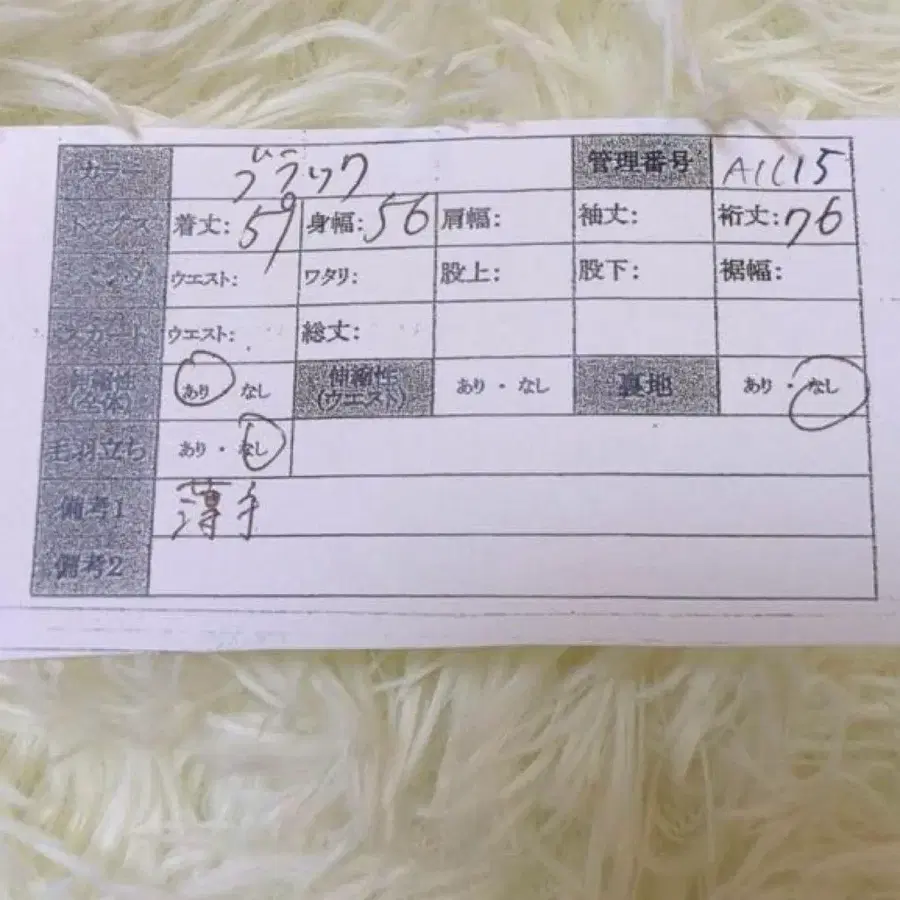 カラー ブラック 管理番号 A1C15
トップス 着丈: 59 身幅: 56 肩幅: 袖丈: 裄丈: 76
パンツ ウエスト: ワタリ: 股上: 股下: 裾幅:
スカート ウエスト: 総丈:
伸縮性 (全体) あり なし 伸縮性 (ウエスト) あり・なし 裏地 あり・なし
毛羽立ち あり・なし
備考1 薄手
備考2